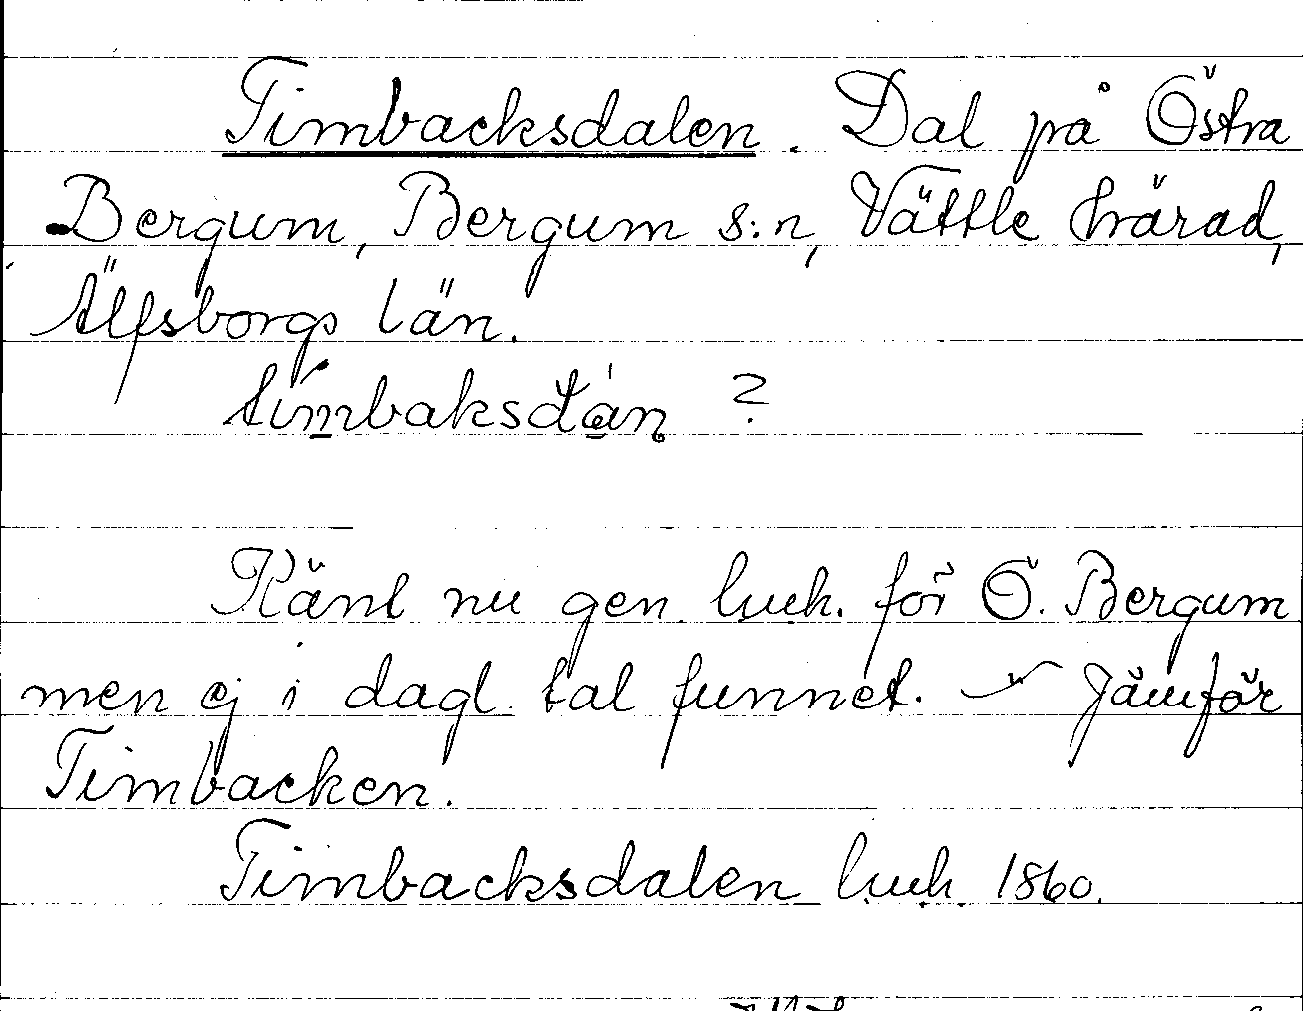 Timbacksdalen. Dal på Östra
Bergum, Bergum s:n, Vättle härad,
Älfsborgs län.
Känt nu gen luck. för Ö. Bergum
men ej i dagl. tal funnet. Jämför
Timbacken.
Timbacksdalen luck 1860.